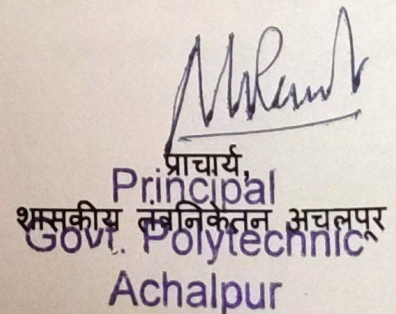 प्राचार्य,
Principal
शासकीय तंत्रनिकेतन अचलपूर
Govt. Polytechnic
Achalpur